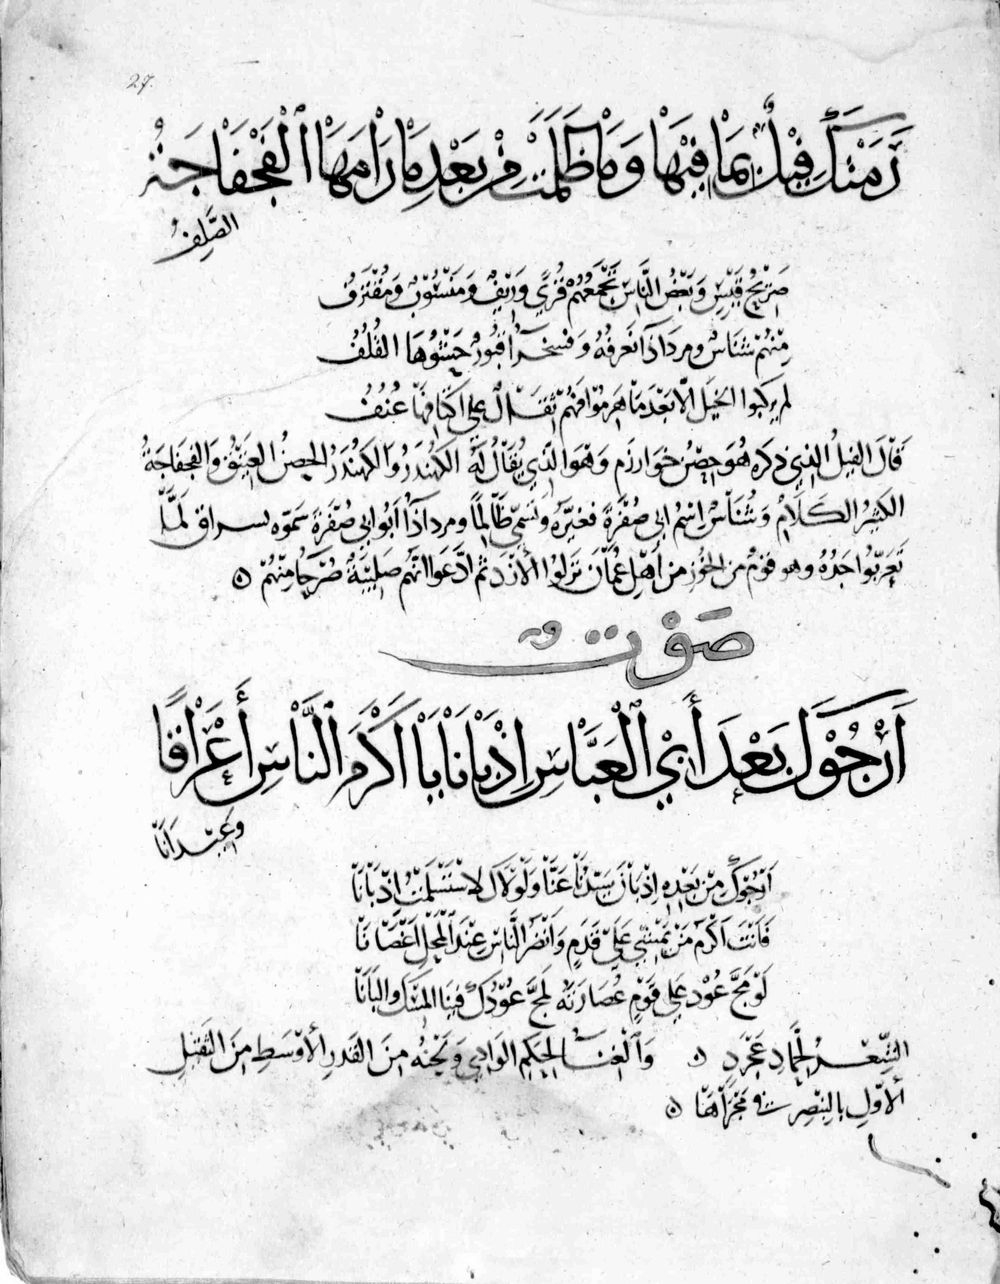 27.
رَمَتْكَ فِيْلٌ بِمَا فِيْهَا وَمَا ظَلَمَتْ مِنْ بَعْدِ مَا رَامَهَا الْفَجْفَاجَةُ
الصَّلِفُ
صَرِيحُ قَيْسٍ وَبَعْضُ النَّاسِ يَجْمَعُهُمْ قُرًى وَرِيْفٌ وَمَنْسُوْبٌ وَمُقْتَرِفُ
مِنْهُمْ شُنَاسٌ ومرداذا نَعْرِفُهُ وَفَسْخَرَا قُبُورٌ حَشْوُهَا القُلُفُ
لم يركبوا الخيل الّا بَعْدَ مَا هرموا فَهُمْ ثِقَالٌ على اكتافها عُنُفُ
قَالَ الفيلُ الذي ذكره هُوَ حِصْنُ خوارزم وَهْوَ الَّذي يُقَالُ لَهُ الكهندر والكهندر الحِصنُ العَتِيْقُ وَالفجفاجَةُ
الكَثِيرُ الكَلَامِ وَشُنَاسٌ اسْمُ ابي صُفْرَةَ فغيّرَهُ وتَسَمّى ظَالِمًا ومرداذا أَبُو ابي صُفْرَةَ سَمّوه بسراق لَمّا
تَعَرَّبُوا جَدُّهُ وهو قَوْمٌ من الخوز من اهْلِ عُمَانَ نَزَلُوا الأَزْدَ ثُم ادَّعَوا انّهم صَلِيْبَةٌ صُرَحَا مِنْهُمْ ٥
صَوْتٌ
اَرْجُوْكَ بَعْدَ أَبِيْ الْعَبَّاسِ اِذْ بَانَا يَا اَكْرَمَ النَّاسِ أَعْرَاقًا
وَعِيْدَانَا
اَرْجُوْكَ مِنْ بَعْدِهِ اِذْ بَانَ سَيِّدُنَا عَنَّا وَلَوْلَاكَ لاسْتَسْلَمْتُ اِذْ بَانَا
فَاَنْتَ اَكْرَمُ مَنْ يَمْشِي عَلَى قَدَمٍ وَاَنْضَرُ النَّاسِ عِنْدَ الْمَحْلِ اَغْصَانَا
لَوْ مَجَّ عُوْدٌ عَلى قَوْمٍ عُصَارَتَهُ لَمَجَّ عُوْدُكَ فِيْنَا المِسْكَ وَالبَانَا
الشِّعْرُ لِحَمَّادِ عَجْرَدٍ ٥ وَالْغِنَا لِحِكَمِ الوَادِي وَلَحْنُهُ مِنَ القَدرِ الأَوْسَطِ مِنَ الثَّقِيْلِ
الأَوّلِ بِالبِنْصِرِ فِي مَجْرَاهَا ٥